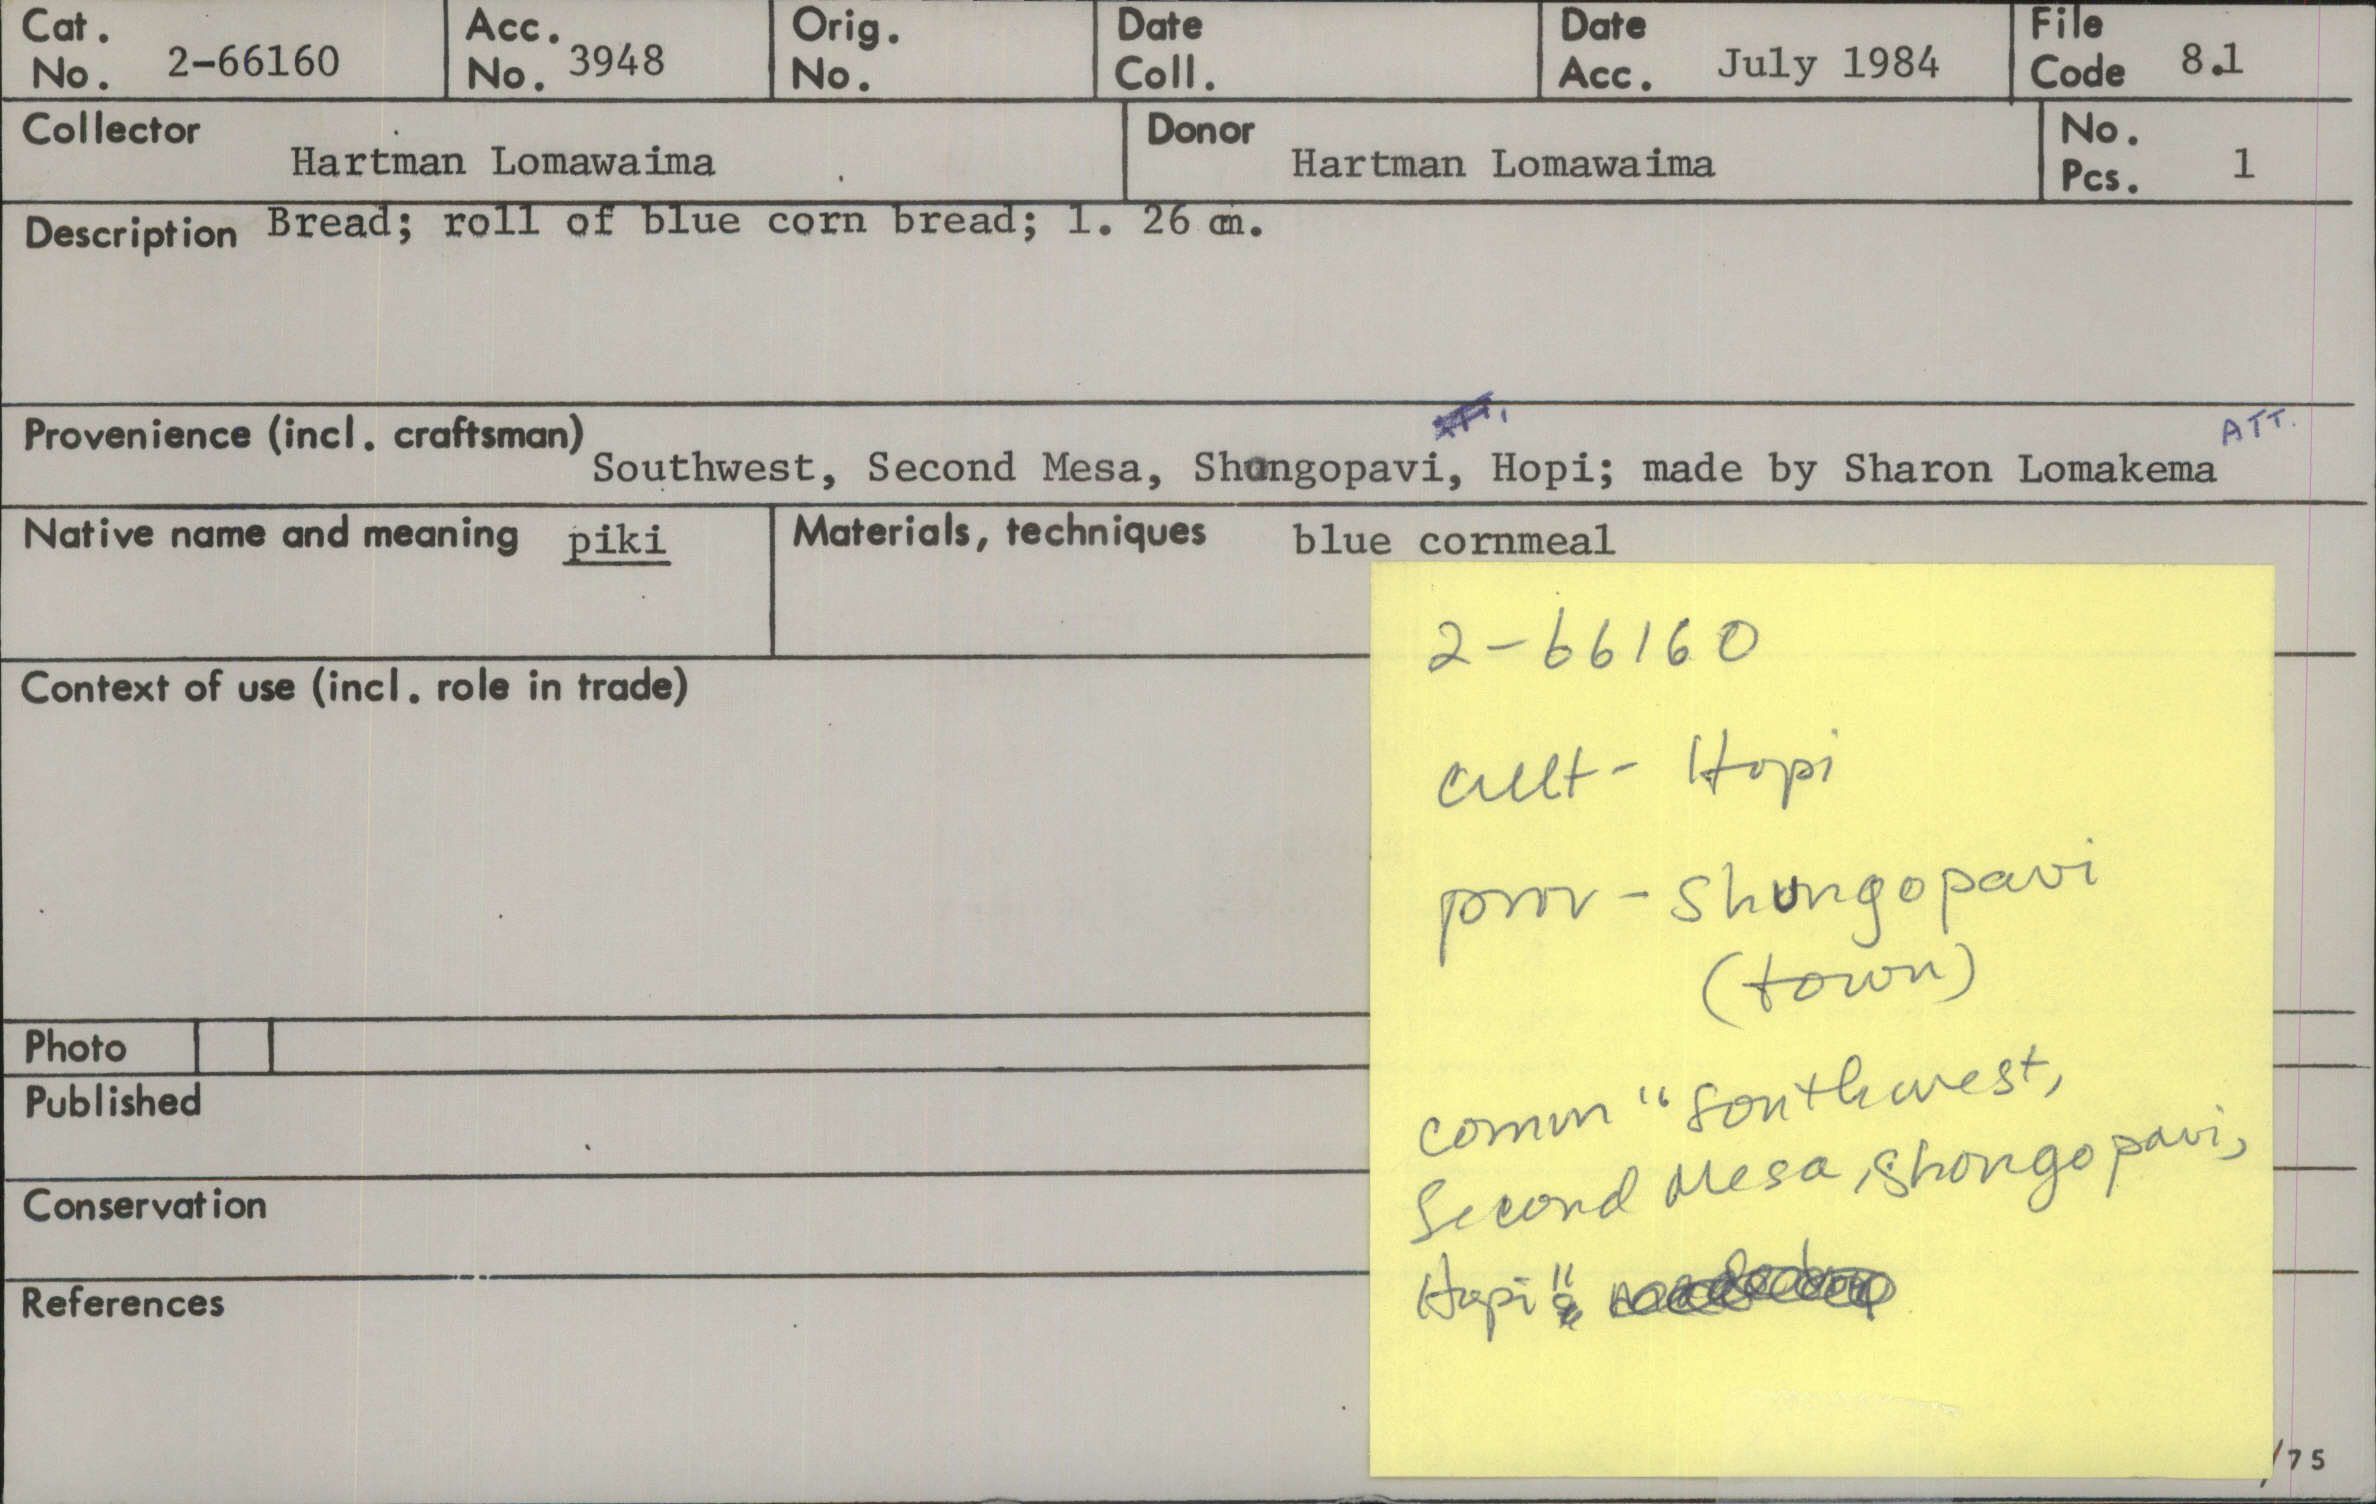 Cat. No. 2-66160 Acc. No. 3948 Orig. No. Date Coll. Date Acc. July 1984 File Code 8.1
Collector Hartman Lomawaima Donor Hartman Lomawaima No. Pcs. 1
Description Bread; roll of blue corn bread; l. 26 cm.
Provenience (incl. craftsman) Southwest, Second Mesa, Shungopavi, Hopi; made by Sharon Lomakema ATT.
Native name and meaning piki Materials, techniques blue cornmeal
Context of use (incl. role in trade)
Photo
Published
Conservation
References
2-66160
cult - Hopi
prov - Shungopavi
(town)
comm "Southwest,
Second Mesa, Shongopavi,
Hopi"
/75